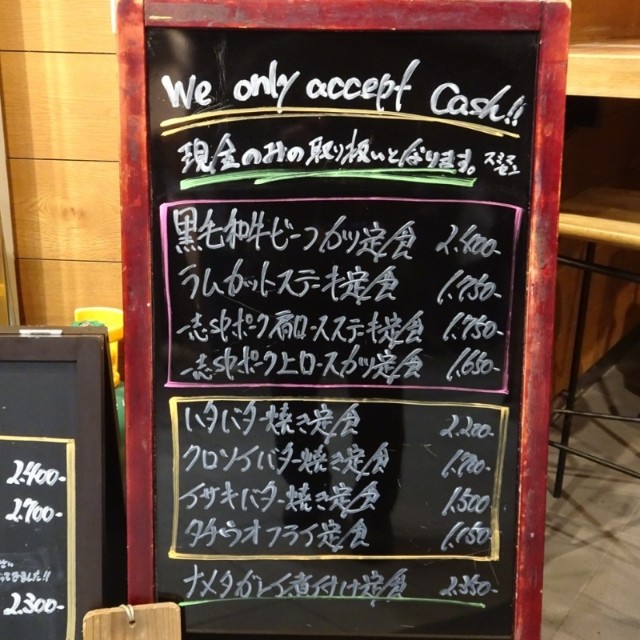 We only accept Cash!!
現金のみの取り扱いとなります。スミマセン
黒毛和牛ビーフカツ定食 2.600-
ラムカットステーキ定食 1.750-
一志SPポーク肩ロースステーキ定食 1.750-
一志SPポーク上ロースカツ定食 1.650-
ハタバター焼き定食 2.200-
クロソイバター焼き定食
イサキバター焼き定食 1.500-
タチウオフライ定食 1.150-
ナメタガレイ煮付け定食 2.350-
2.400-
2.700-
ました!!
2.300-